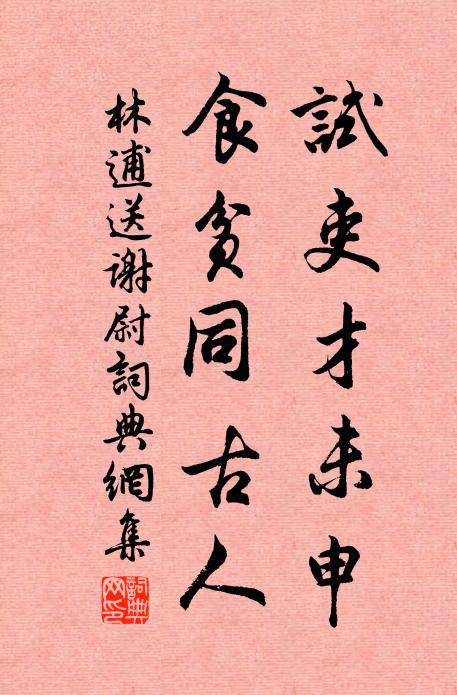 試吏才未申
食貧同古人
林逋送謝尉詞典網集
詞典網印